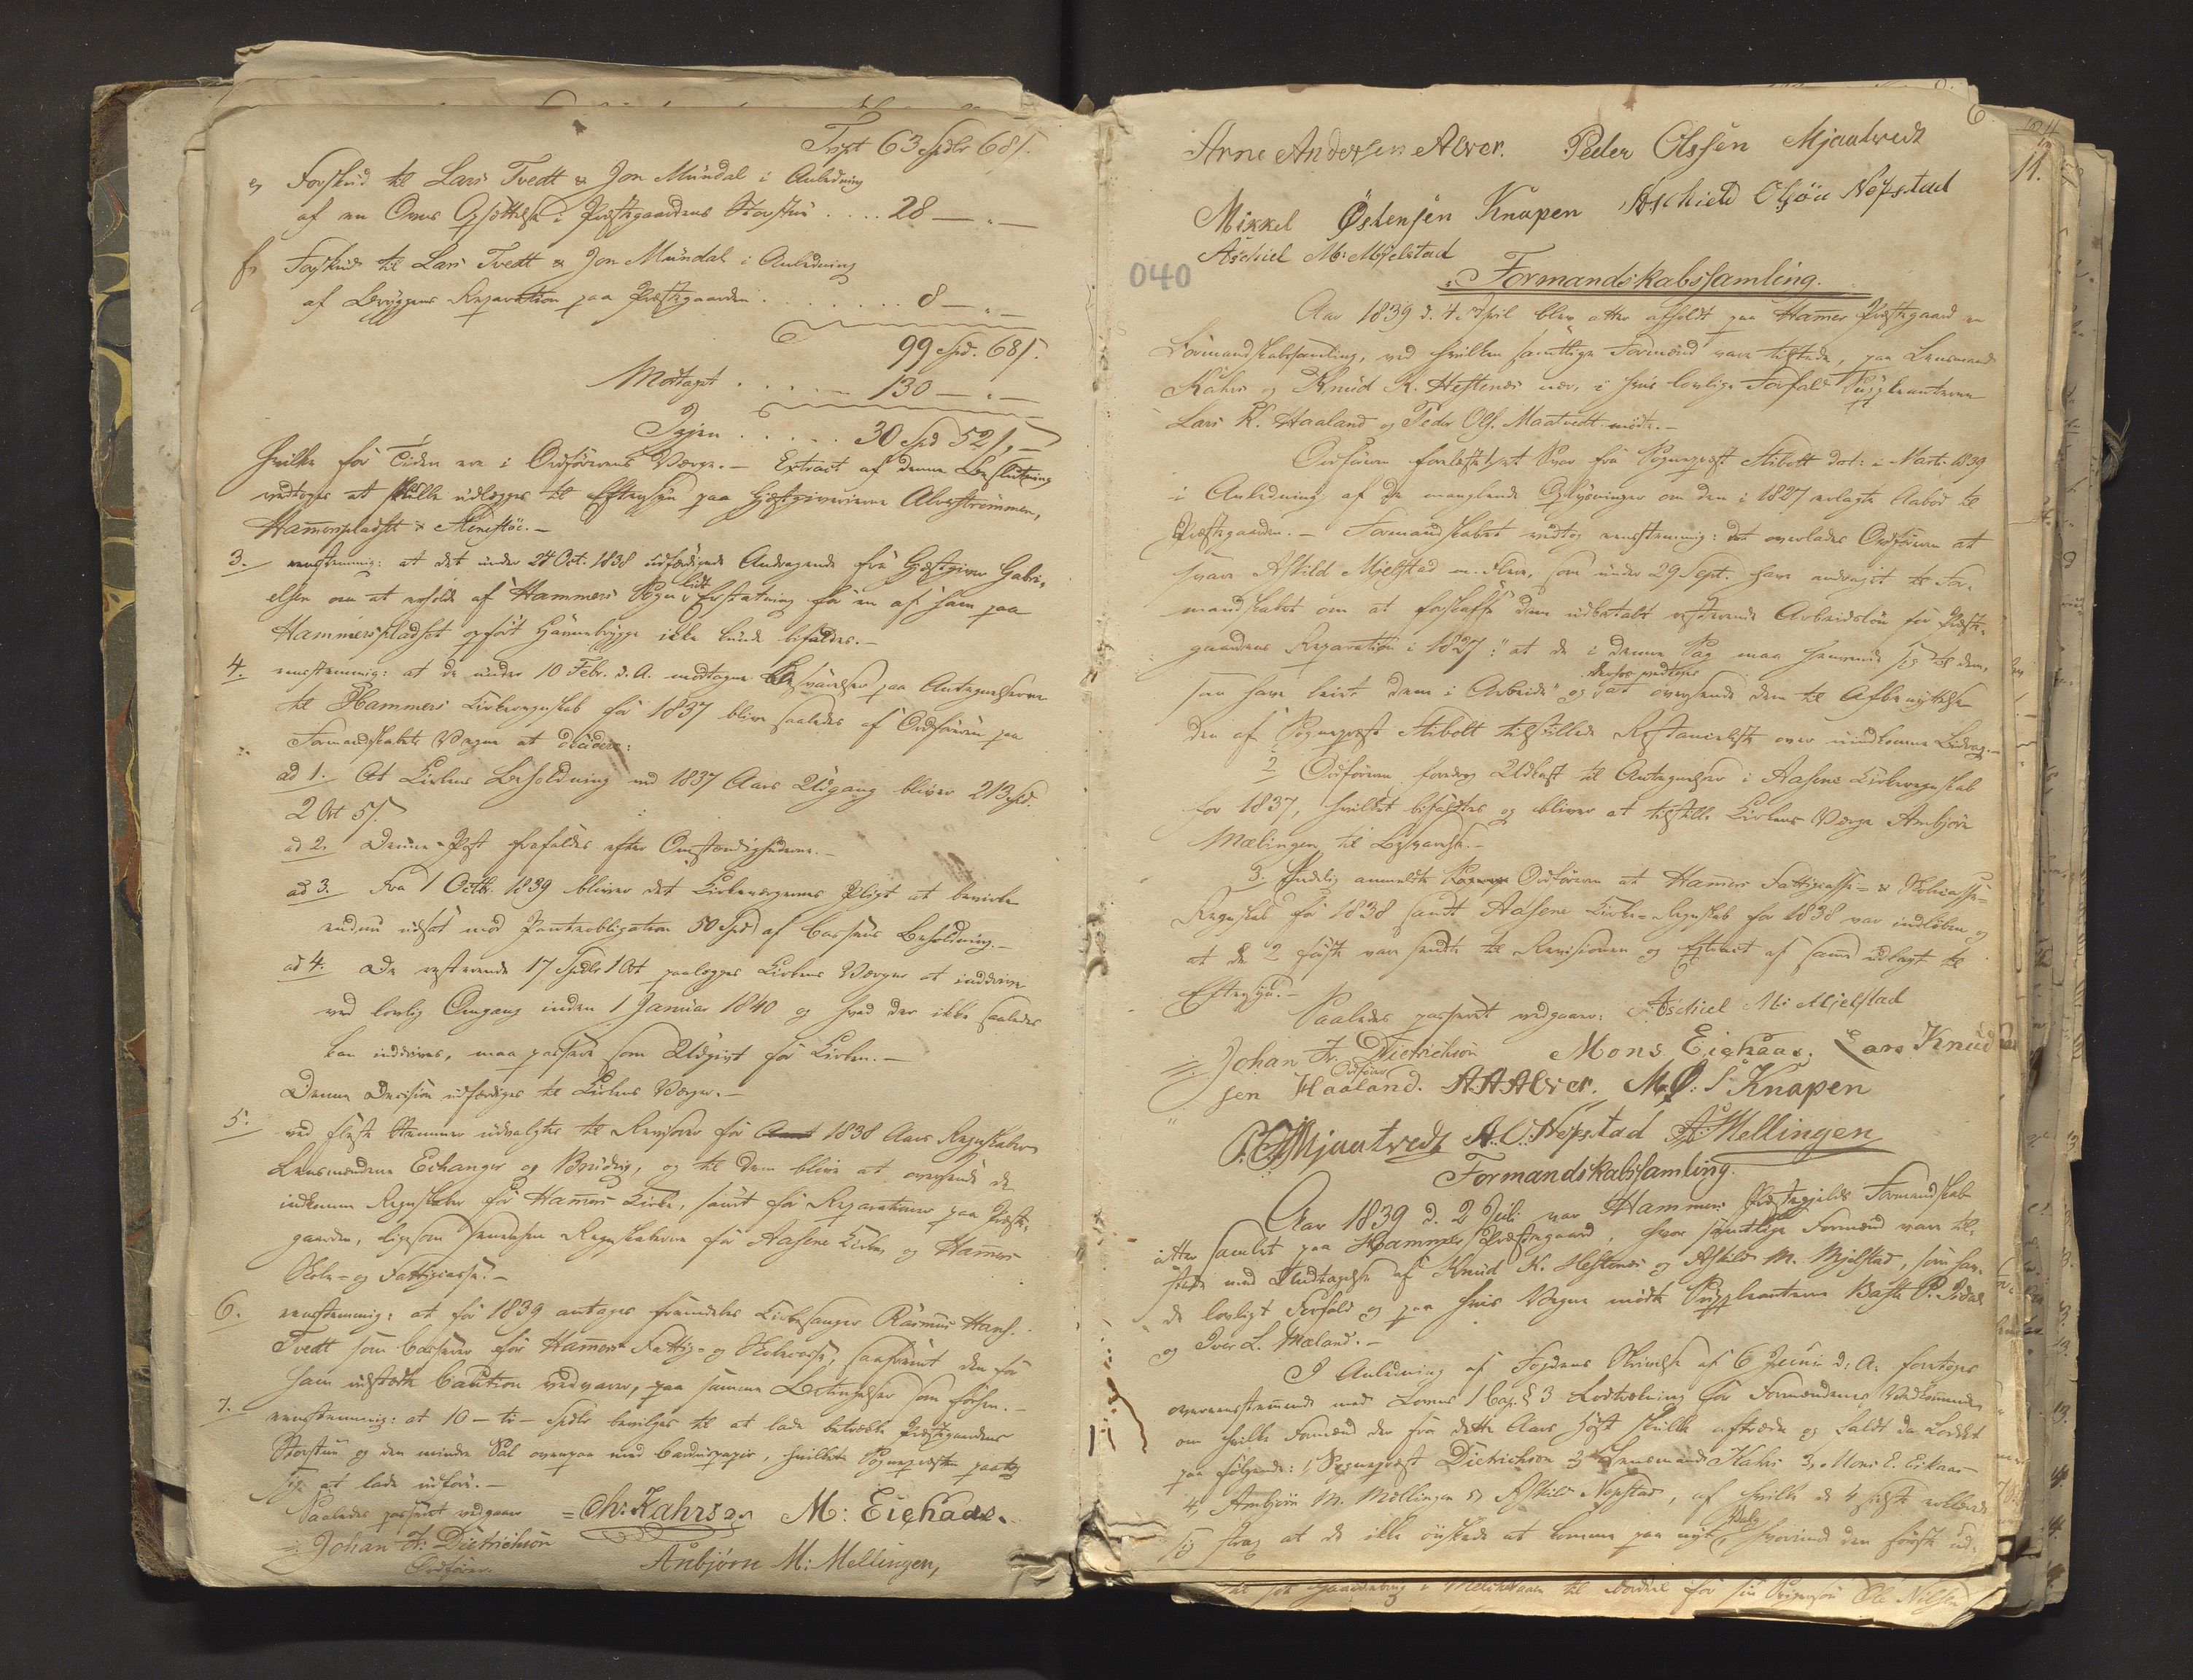 Trspt 63 Spdlr 68 ſ.
e, Forskud til Lars Tvedt & Jon Mundal i Anledning
af en Ovns Opsættelse i Præstegaardens Storstue .... 28 — . —
f, Forskud til Lars Tvedt & Jon Mundal i Anledning
af Bryggens Reparation paa Præstegaarden ........ 8 — . —
99 Spd. 68 ſ.
Modtaget ..... 130 — . —
Igjen ..... 30 Spd 52 ſ, —
hvilke for Tiden ere i Ordførerens Værge. — Extract af denne Beslutning
vedtoges at skulle udlægges til Eftersyn paa Gjæstgiverierne Alverstrømmen,
Hammerspladset & Kilstrøe. —
3. eenstemmig: at det under 24 Oct. 1838 udfærdigede Andragende fra Gjæstgiver Gabri,,
elsen om at erholde af Hammers Sogn lidt Erstatning for en af ham paa
Hammerspladset opført Havnebrygge ikke kunde bifaldes. —
4. eenstemmig: at de under 10 Febr. d. A. modtagne Besvarelser paa Antegnelserne
til Hammers Kirkeregnskab for 1837 blive saaledes af Ordføreren paa
Formandskabets Vegne at decidere:
ad 1. At Kirkens Beholdning ved 1837 Aars Udgang bliver 213 Spd.
2 Ort 5 ſ.
ad 2. Denne Post frafaldes efter Omstændighederne. —
ad 3. Fra 1 Octbr. 1839 bliver det Kirkeværgernes Pligt at bevirke
endnu udsat mod Panteobligation 50 Spd af Cassens Beholdning. —
ad 4. De resterende 17 Spdlr 1 Ort paalægges Kirkens Værger at inddrive
ved lovlig Omgang inden 1 Januar 1840 og hvad der ikke saaledes
kan inddrives, maa passere som Udgivt for Kirken. —
Denne Decision udfærdiges til Kirkens Værger. —
5. ved fleste Stemmer udvalgtes til Revisorer for 1838 Aars Regnskaber
Lensmændene Echanger og Brudvig, og til dem blive at oversende de
indkomne Regnskaber for Hammers Kirke, samt for Reparationer paa Præste,,
gaarden, ligesom senere Regnskaberne for Aasene Kirke og Hammers
Skole- og Fattigcasse. —
6. eenstemmig: at for 1839 antages fremdeles Kirkesanger Rasmus Hans.
Tvedt som Casserer for Hammers Fattig- og Skolecasse, saafremt den for
ham udstædte Caution vedvarer, paa samme Betingelser som forhen. —
7. eenstemmig: at 10 — ti — Spdlr bevilges til at lade betrække Præstegaardens
Storstue og den mindre Sal ovenpaa med Carduspapir, hvilket Sognepræsten paatog
sig at lade udføre. —
Saaledes passeret vedgaaer = Ch: Kahrs M: Eichaas.
Johan Fr. Dietrichson
Ordfører. Anbjørn M: Mellingen,
6
11.
Arne Andersen Alver. Peder Olssen Mjaatvedt
Mikkel Østensen Knapen Aschield Olsøn Nøpstad
Aschiel M: Mjelstad
040
Formandskabssamling.
Aar 1839 d. 4 April blev atter afholdt paa Hammer Præstegaard en
Formandskabssamling, ved hvilken samtlige Formænd vare tilstede, paa Lensmand
Kahrs og Knud K. Hestenes nær, i hvis lovlige Forfald Suppleanterne
Lars K. Haaland og Peder Ols. Maatvedt mødte. —
Ordføreren forelæste et Svar fra Sognepræst Stibolt dat: i Marts 1839
i Anledning af de manglende Oplysninger om den i 1827 erlagte Aabod til
Præstegaarden. — Formandskabet vedtog eenstemmig: det overlades Ordføreren at
svare Askild Mjelstad m. Flere, som under 29 Sept. have andraget til For,,
mandskabet om at forskaffe dem udbetalt resterende Arbeidsløn for Præste,,
gaardens Reparation i 1827: "at de i denne Sag maa henvende sig til dem,
som have leiet dem i Arbeide" og derhos vedtoges at oversende dem til Afbenyttelse
den af Sognepræst Stibolt tilstillede Restanceliste over uindkomne Bidrag. —
2. Ordføreren foredrog Udkast til Antegnelser i Aasene Kirkeregnskab
for 1837, hvilket bifaldtes og bliver at tilstille Kirkens Værge Anbjørn
Mælingen til Besvarelse. —
3. Endelig anmeldte Ordføreren at Hammers Fattigcasse- & Skolecasse-
Regnskab for 1838 samt Aasene Kirke-Regnskab for 1838 var indløben og
at de 2 første vare sendte til Revisionen og Extract af samme udlagt til
Eftersyn. —
Saaledes passeret vedgaaer: Aschiel M: Mjelstad
Johan Fr. Dietrichson Mons Eichaas. Lars Knud
Ordfører
sen Haaland. A.A.Alver. M:Ø: S Knapen
P.O.Mjaatvedt A.O.Nøpstad A:Mellingen
Formandskabssamling.
Aar 1839 d. 2 Juli var Hammers Præstegjelds Formandskab
atter samlet paa Hammers Præstegaard, hvor samtlige Formænd vare til,,
stede med Undtagelse af Knud K. Hestenes og Askild M. Mjelstad, som hav,,
de lovligt Forfald og paa hvis Vegne mødte Suppleanterne
og Iver L. Mæland. —
I Anledning af Fogdens Skrivelse af 6 Juni d. A. foretoges
overensstemmende med Lovens 1 Cap. § 3 Lodtrækning for Formændenes Vedkommende
om hvilke Formænd der fra dette Aars Høst skulle aftræde og faldt da Loddet
paa følgende: 1, Sognepræst Dietrichson 2, Lensmand Kahrs 3, Mons E. Eikaas
4, Anbjørn M. Mellingen 5, Askild Nøpstad, af hvilke de 4 sidste erklærede
sig strax at de ikke ønskede at komme paa nyt Valg, hvorimod den første ud-